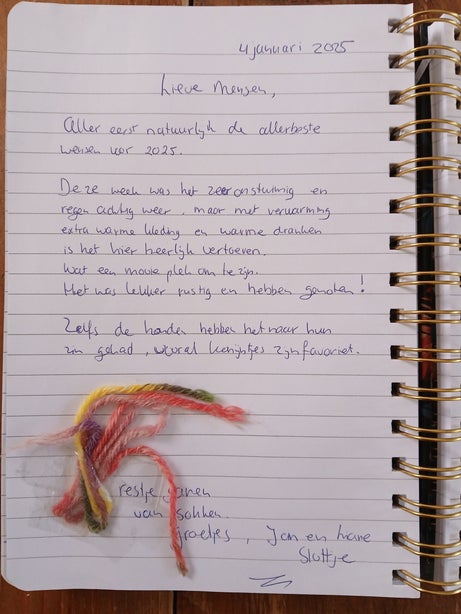 4 januari 2025
Lieve mensen,
Aller eerst natuurlijk de allerbeste
wensen voor 2025.
Deze week was het zeer onstuimig en
regen achtig weer, maar met verwarming
extra warme kleding en warme dranken
is het hier heerlijk vertoeven.
Wat een mooie plek om te zijn.
Het was lekker rustig en hebben genoten!
Zelfs de honden hebben het naar hun
zin gehad, vooral konijntjes zijn favoriet.
restje garen
van sokken.
groetjes, Jan en